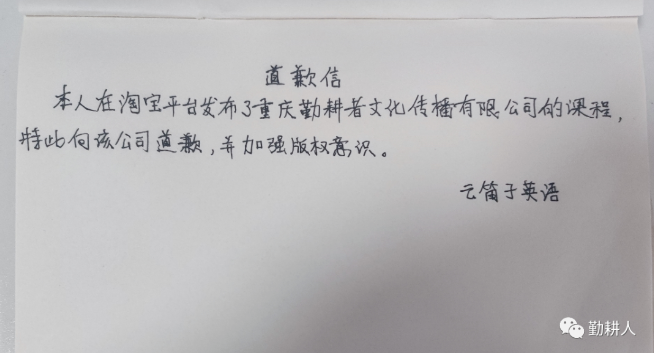 道歉信
本人在淘宝平台发布了重庆勤耕者文化传播有限公司的课程，
特此向该公司道歉，并加强版权意识。
云笛子英语
勤耕人